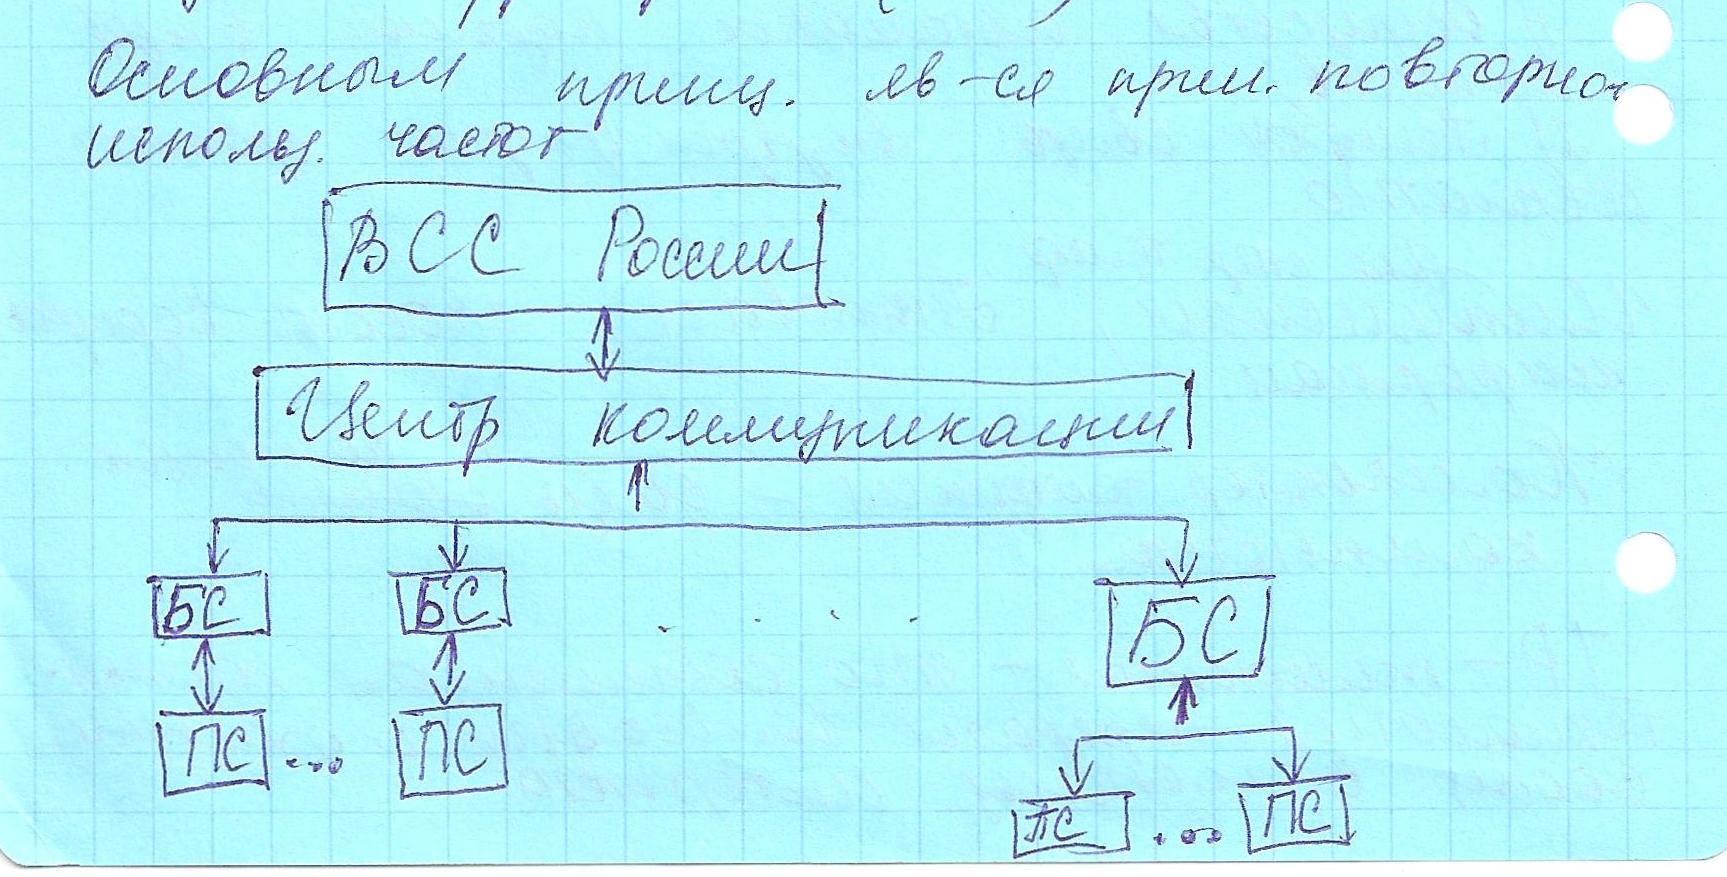 Основным принц. яв-ся прин. повторно
использ. частот
ВСС России
Центр коммуникации
БС БС .... БС
ПС ... ПС
ПС .... ПС